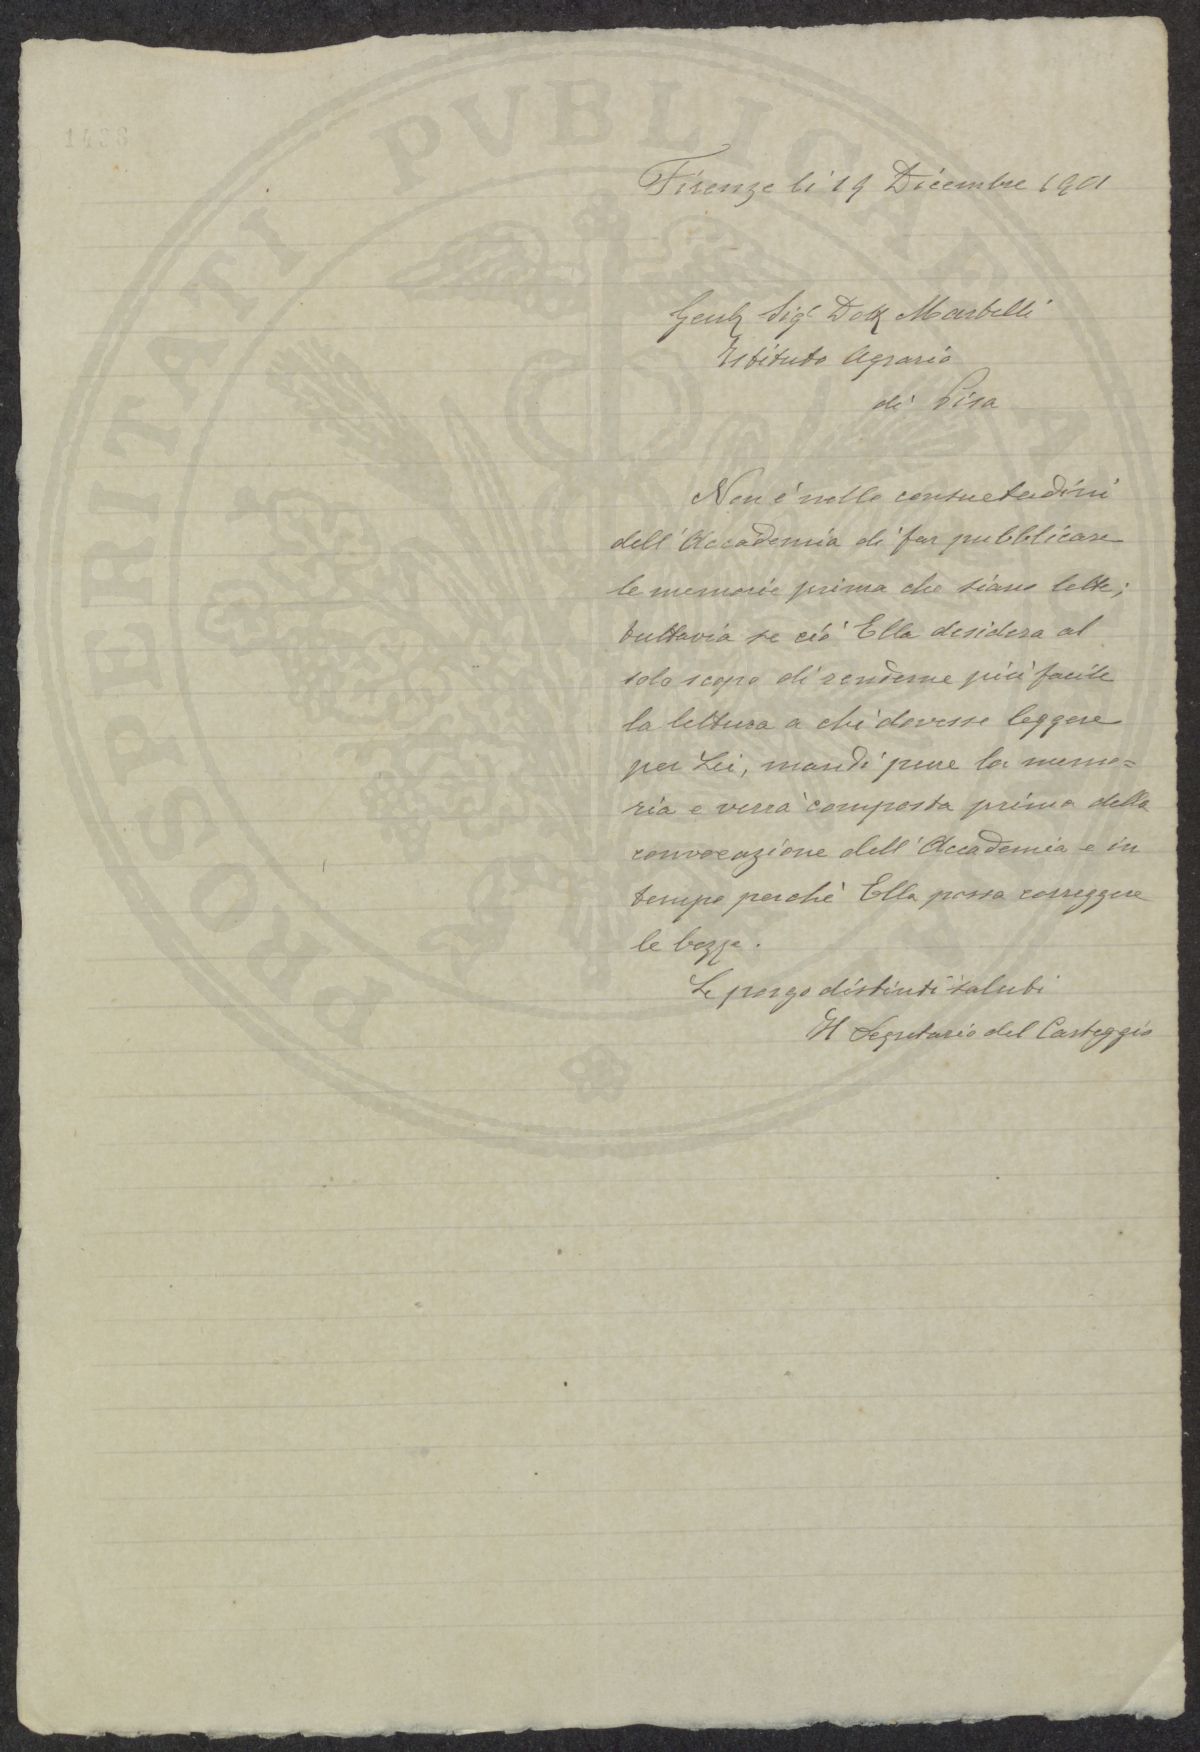 1436
PROSPERITATI PVBLICAE AVGENDAE
Firenze li 19 Dicembre 1901
Sig.r Dott Martelli
Istituto Agrario
di Pisa
Non é nelle consuetudini
dell'Accademia di far pubblicare
le memorie prima che siano lette;
tuttavia se ció Ella desidera al
solo scopo di renderne piú facile
la lettura a chi dovesse leggere
per Lei, mandi pure la memo=
ria e verrà composta prima della
convocazione dell'Accademia e in
tempo perché Ella possa correggere
le bozze.
Le porgo distinti saluti
Il Segretario del Carteggio